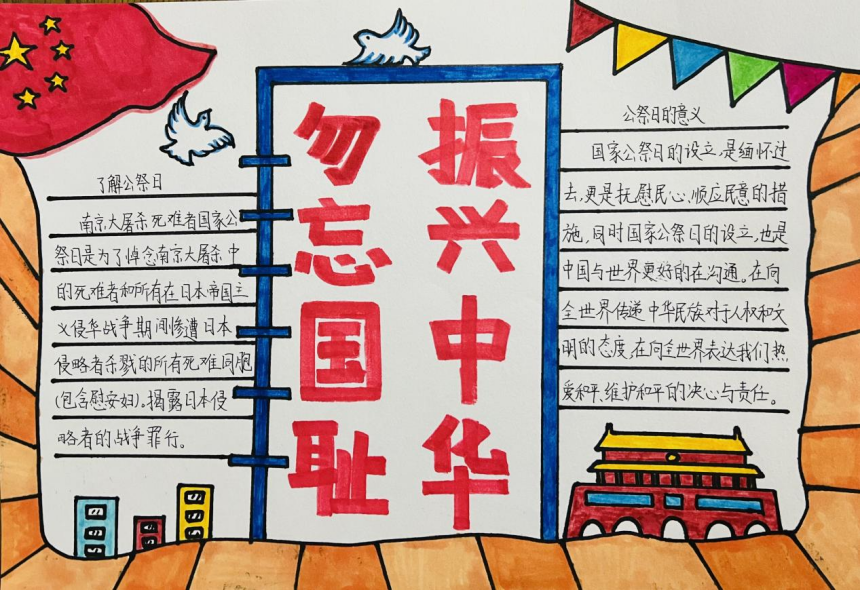 了解公祭日
南京大屠杀死难者国家公
祭日是为了悼念南京大屠杀中
的死难者和所有在日本帝国主
义侵华战争期间惨遭日本
侵略者杀戮的所有死难同胞
(包含慰安妇)。揭露日本侵
略者的战争罪行。
勿忘国耻
振兴中华
公祭日的意义
国家公祭日的设立,是缅怀过
去,更是抚慰民心、顺应民意的措
施,同时国家公祭日的设立,也是
中国与世界更好的在沟通。在向
全世界传递中华民族对于人权和文
明的态度,在向全世界表达我们热
爱和平、维护和平的决心与责任。